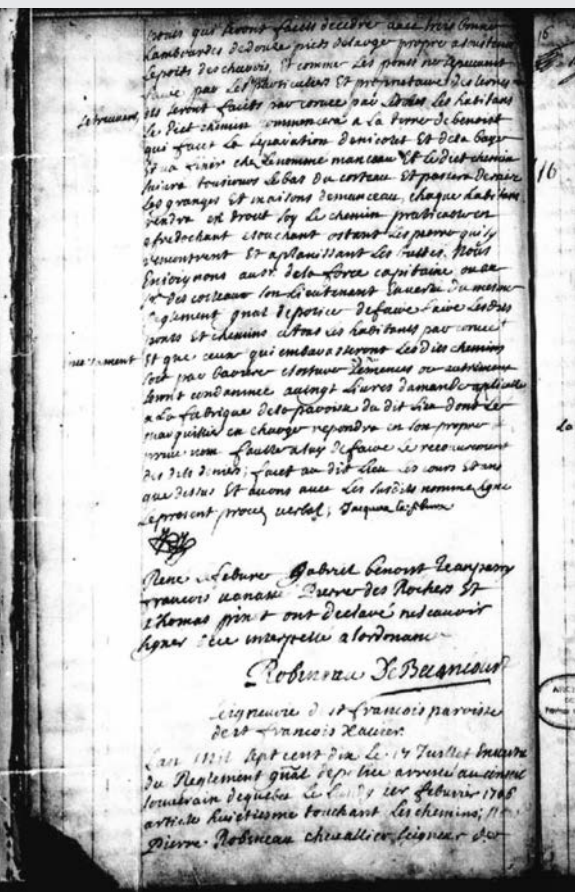 ponts qui seront faicts de cedre avec trois bonnes
Lambourdes de douze pieds de large propre a soustenir
le poits des charois, Et comme Les ponts ne peuvent
faire par Les particuliers Et proprietaires des terres
ils seront faicts par corvee par tous Les habitans
le dict chemin commencera a La terre de benoist
qui faict La separation de nicolet Et de la baye
Et va finir chez Le nommé manceau Et le dict chemin
suivra tousiours le bas du costeau Et passera derriere
Les granges et maisons de manceau, chaque habitant
rendra en droit soy Le chemin praticable en
effredochant essouchant ostant Les pierre qui s'y
rencontrent Et aplanissant Les buttes. Nous
Enioignons au sr. de la force capitaine ou au
sr. des costeaux son Lieutenant En vertu du mesme
reglement gnal de police de faire faire Les dits
ponts Et chemins a tous Les habitants par corvee
Et que ceux qui embarasseront Les dits chemins
soit par barriere closture semences ou autrement
seront condamnée a vingt Livres d'amande aplicable
a La fabrique de la paroisse du dit Lieu dont Le
marguillier en charge repondra en son propre
privé nom faulte a luy de faire le recouvrement
des dits deniers; faict au dit Lieu Les jours Et ans
que dessus Et avons avec Les susdits nommé signé
Le present procez verbal; Jacques Lefebvre
René Lefebvre Gabriel benoist Jean
francois Pierre des Rochers Et
Thomas pinet ont declaré ne sçavoir
signer de ce interpellé a l'ordonance
Robineau De Becancour
seigneurie de st francois paroisse
de st francois Xavier.
L'an Mil sept cent dix Le 17 Juillet En vertu
du Reglement gnal de police arresté au conseil
souverain de quebec Le Lundy 1er febvrier 1706
article huictiesme touchant Les chemins;
Pierre Robineau chevallier seigneur de
16
16
La